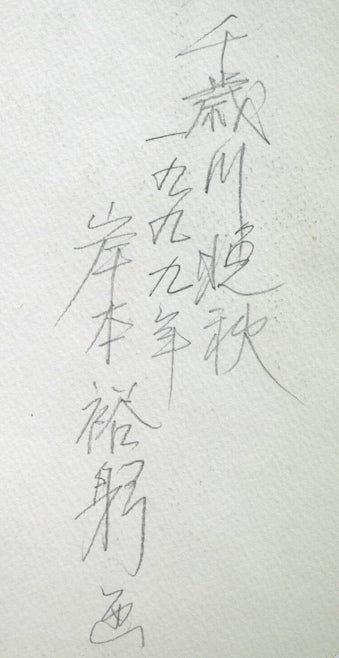 千歳川晩秋
一九九九年
岸本裕躬画